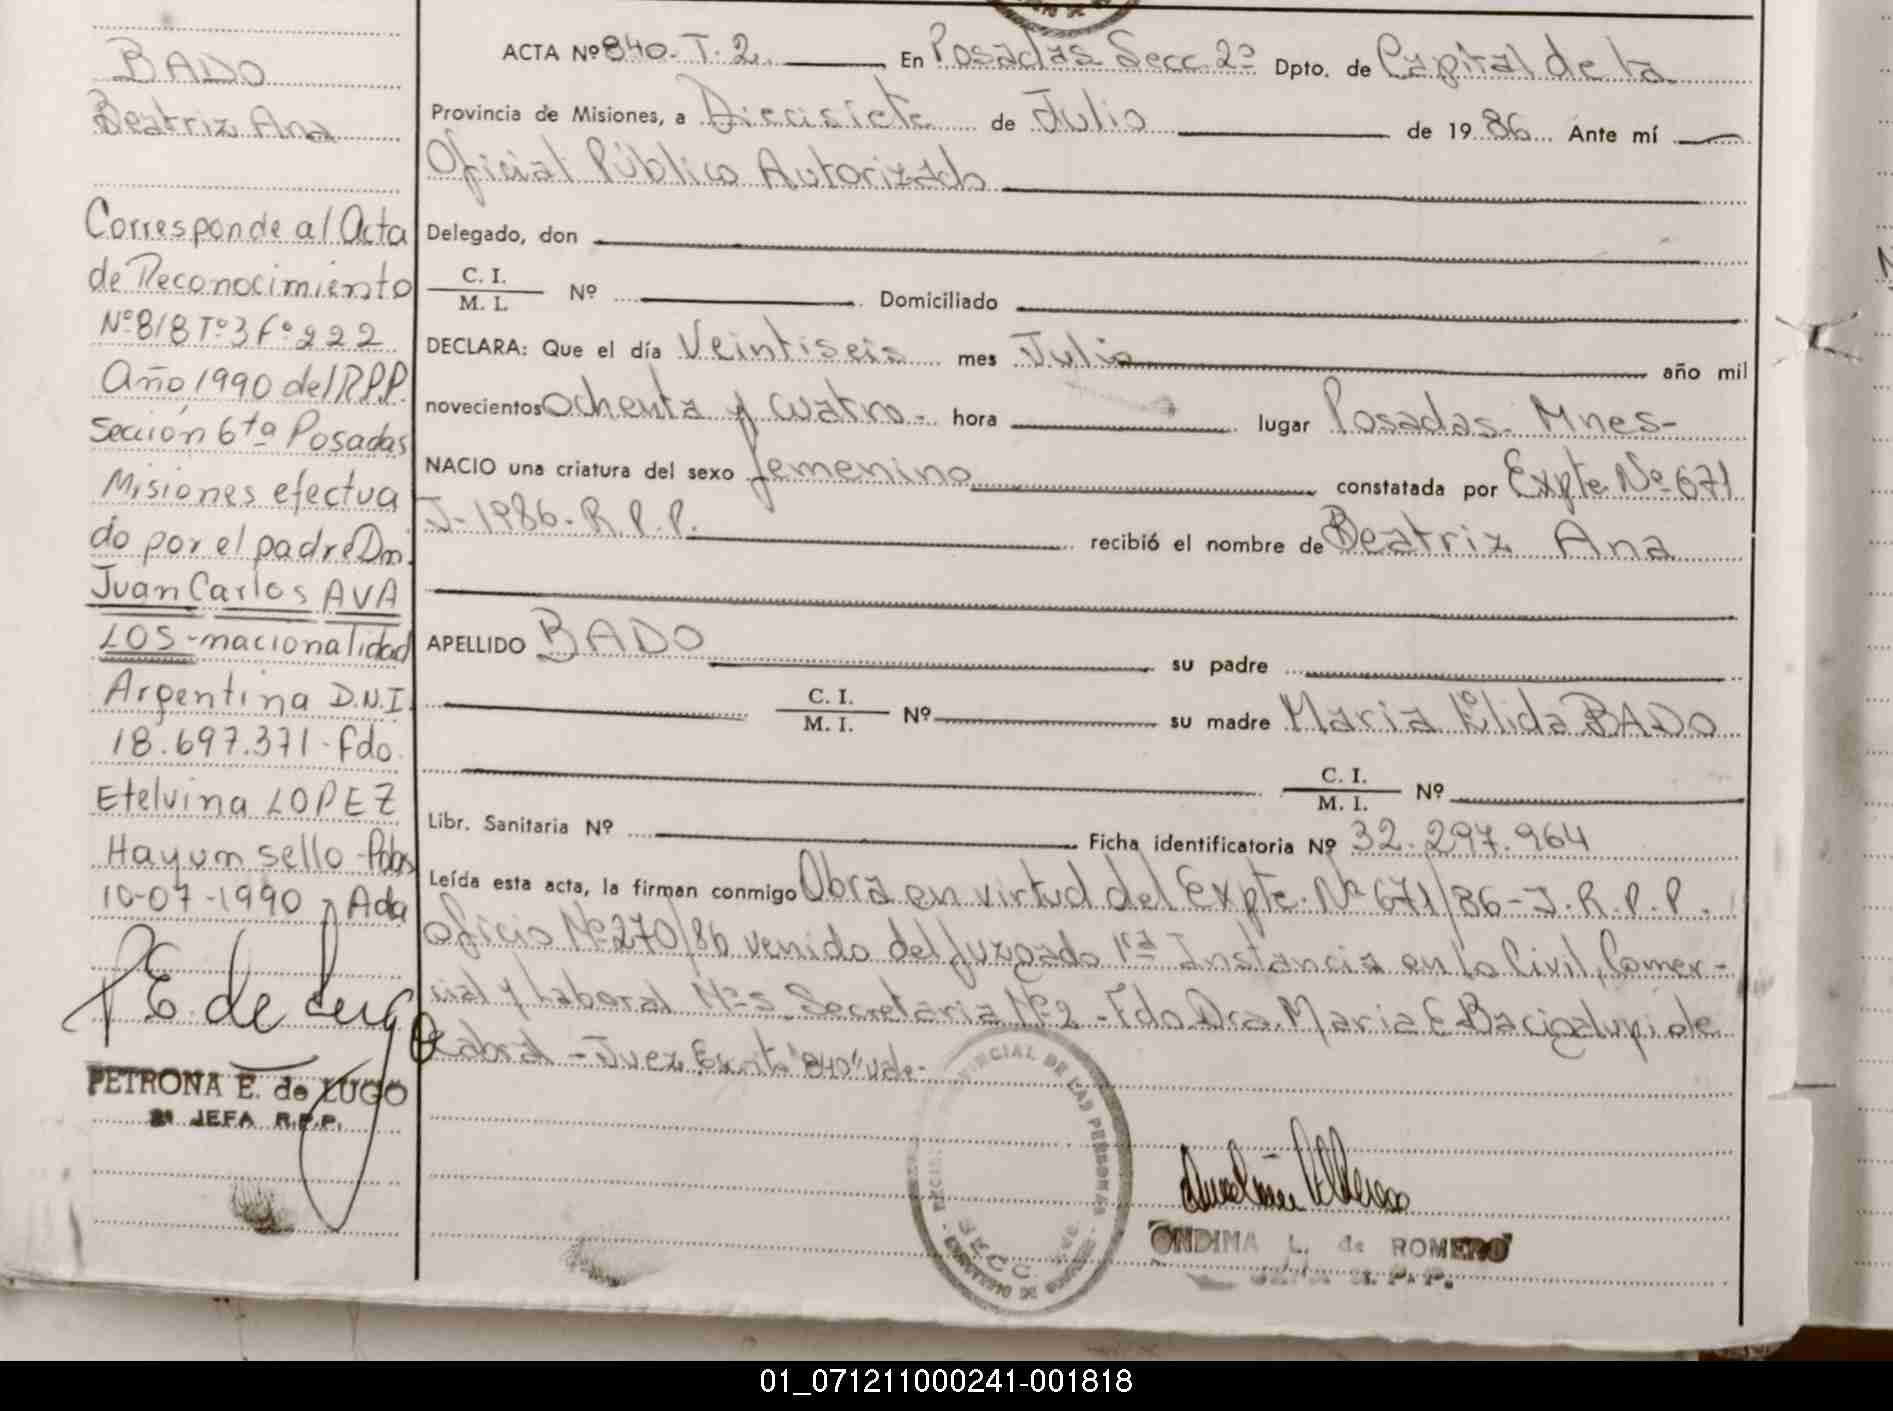 BADO
Beatriz Ana
Corresponde al Acta
de Reconocimiento
Nº 818 Tº 3 Fº 222
Año 1990 del R.P.P.
Sección 6ta Posadas
Misiones efectua
do por el padre Dn.
Juan Carlos AVA
LOS - nacionalidad
Argentina D.N.I.
18.697.371 - fdo.
Etelvina LOPEZ
Hay un sello - Pdas
10-07-1990 - Ada
P E. de Lugo
PETRONA E. de LUGO
2ª JEFA R.P.P.
ACTA Nº 840. T. 2. En Posadas Secc. 2º Dpto. de Capital de la
Provincia de Misiones, a Diecisiete de Julio de 19 86 Ante mí
Oficial Público Autorizado
Delegado, don
C. I.
M. I. Nº Domiciliado
DECLARA: Que el día Veintiseis mes Julio año mil
novecientos Ochenta y cuatro.- hora lugar Posadas. Mnes-
NACIO una criatura del sexo femenino constatada por Expte. Nº 671
J-1986-R.P.P. recibió el nombre de Beatriz Ana
APELLIDO BADO su padre
C. I.
M. I. Nº su madre Maria Elida BADO
C. I.
M. I. Nº
Libr. Sanitaria Nº Ficha identificatoria Nº 32.297.964
Leída esta acta, la firman conmigo Obra en virtud del Expte. Nº 671/86-J.R.P.P.
Oficio Nº 270/86 venido del Juzgado 1ra Instancia en lo Civil, Comer-
cial y Laboral Nº 2 Secretaria Nº 2 - Fdo Dra. Maria E Bacigalupi de
Cabral - Juez. "840" vale-
PROVINCIAL DE LAS PERSONAS
SECC
ONDINA L. de ROMERO
R. P. P.
01_071211000241-001818